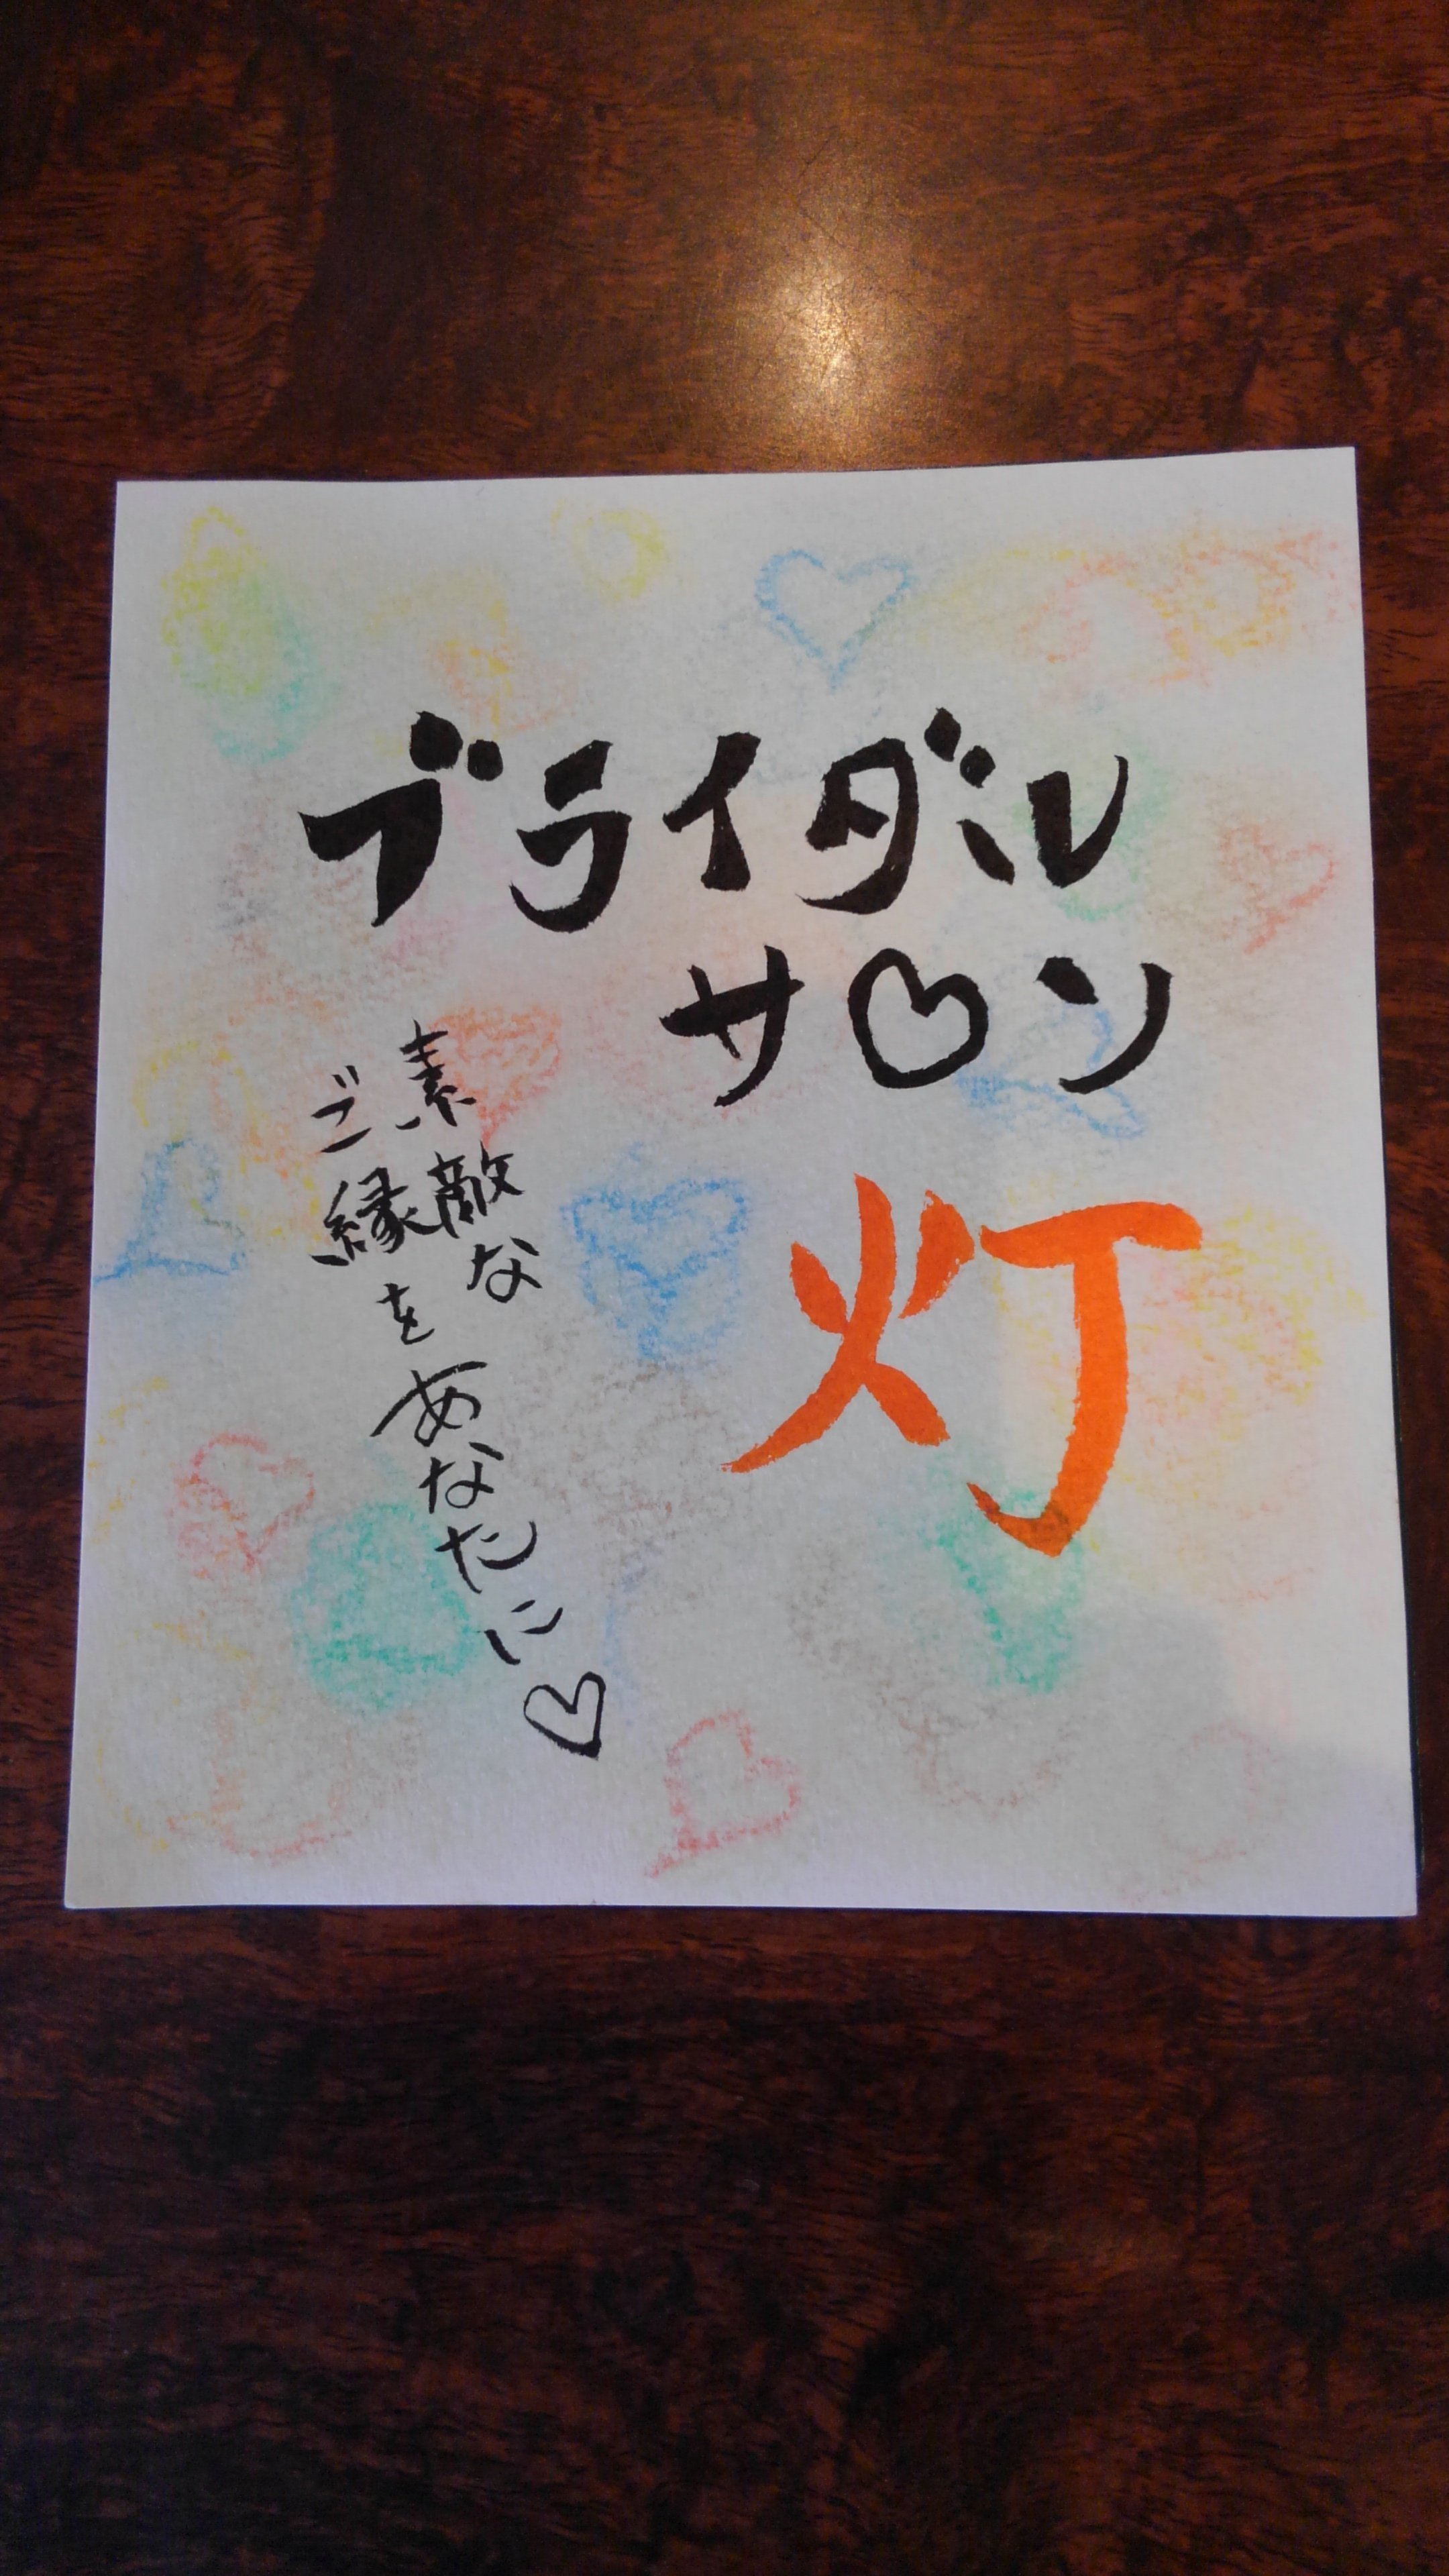 ブライダル
サ♡ン
灯
素敵な
ご縁をあなたに♡